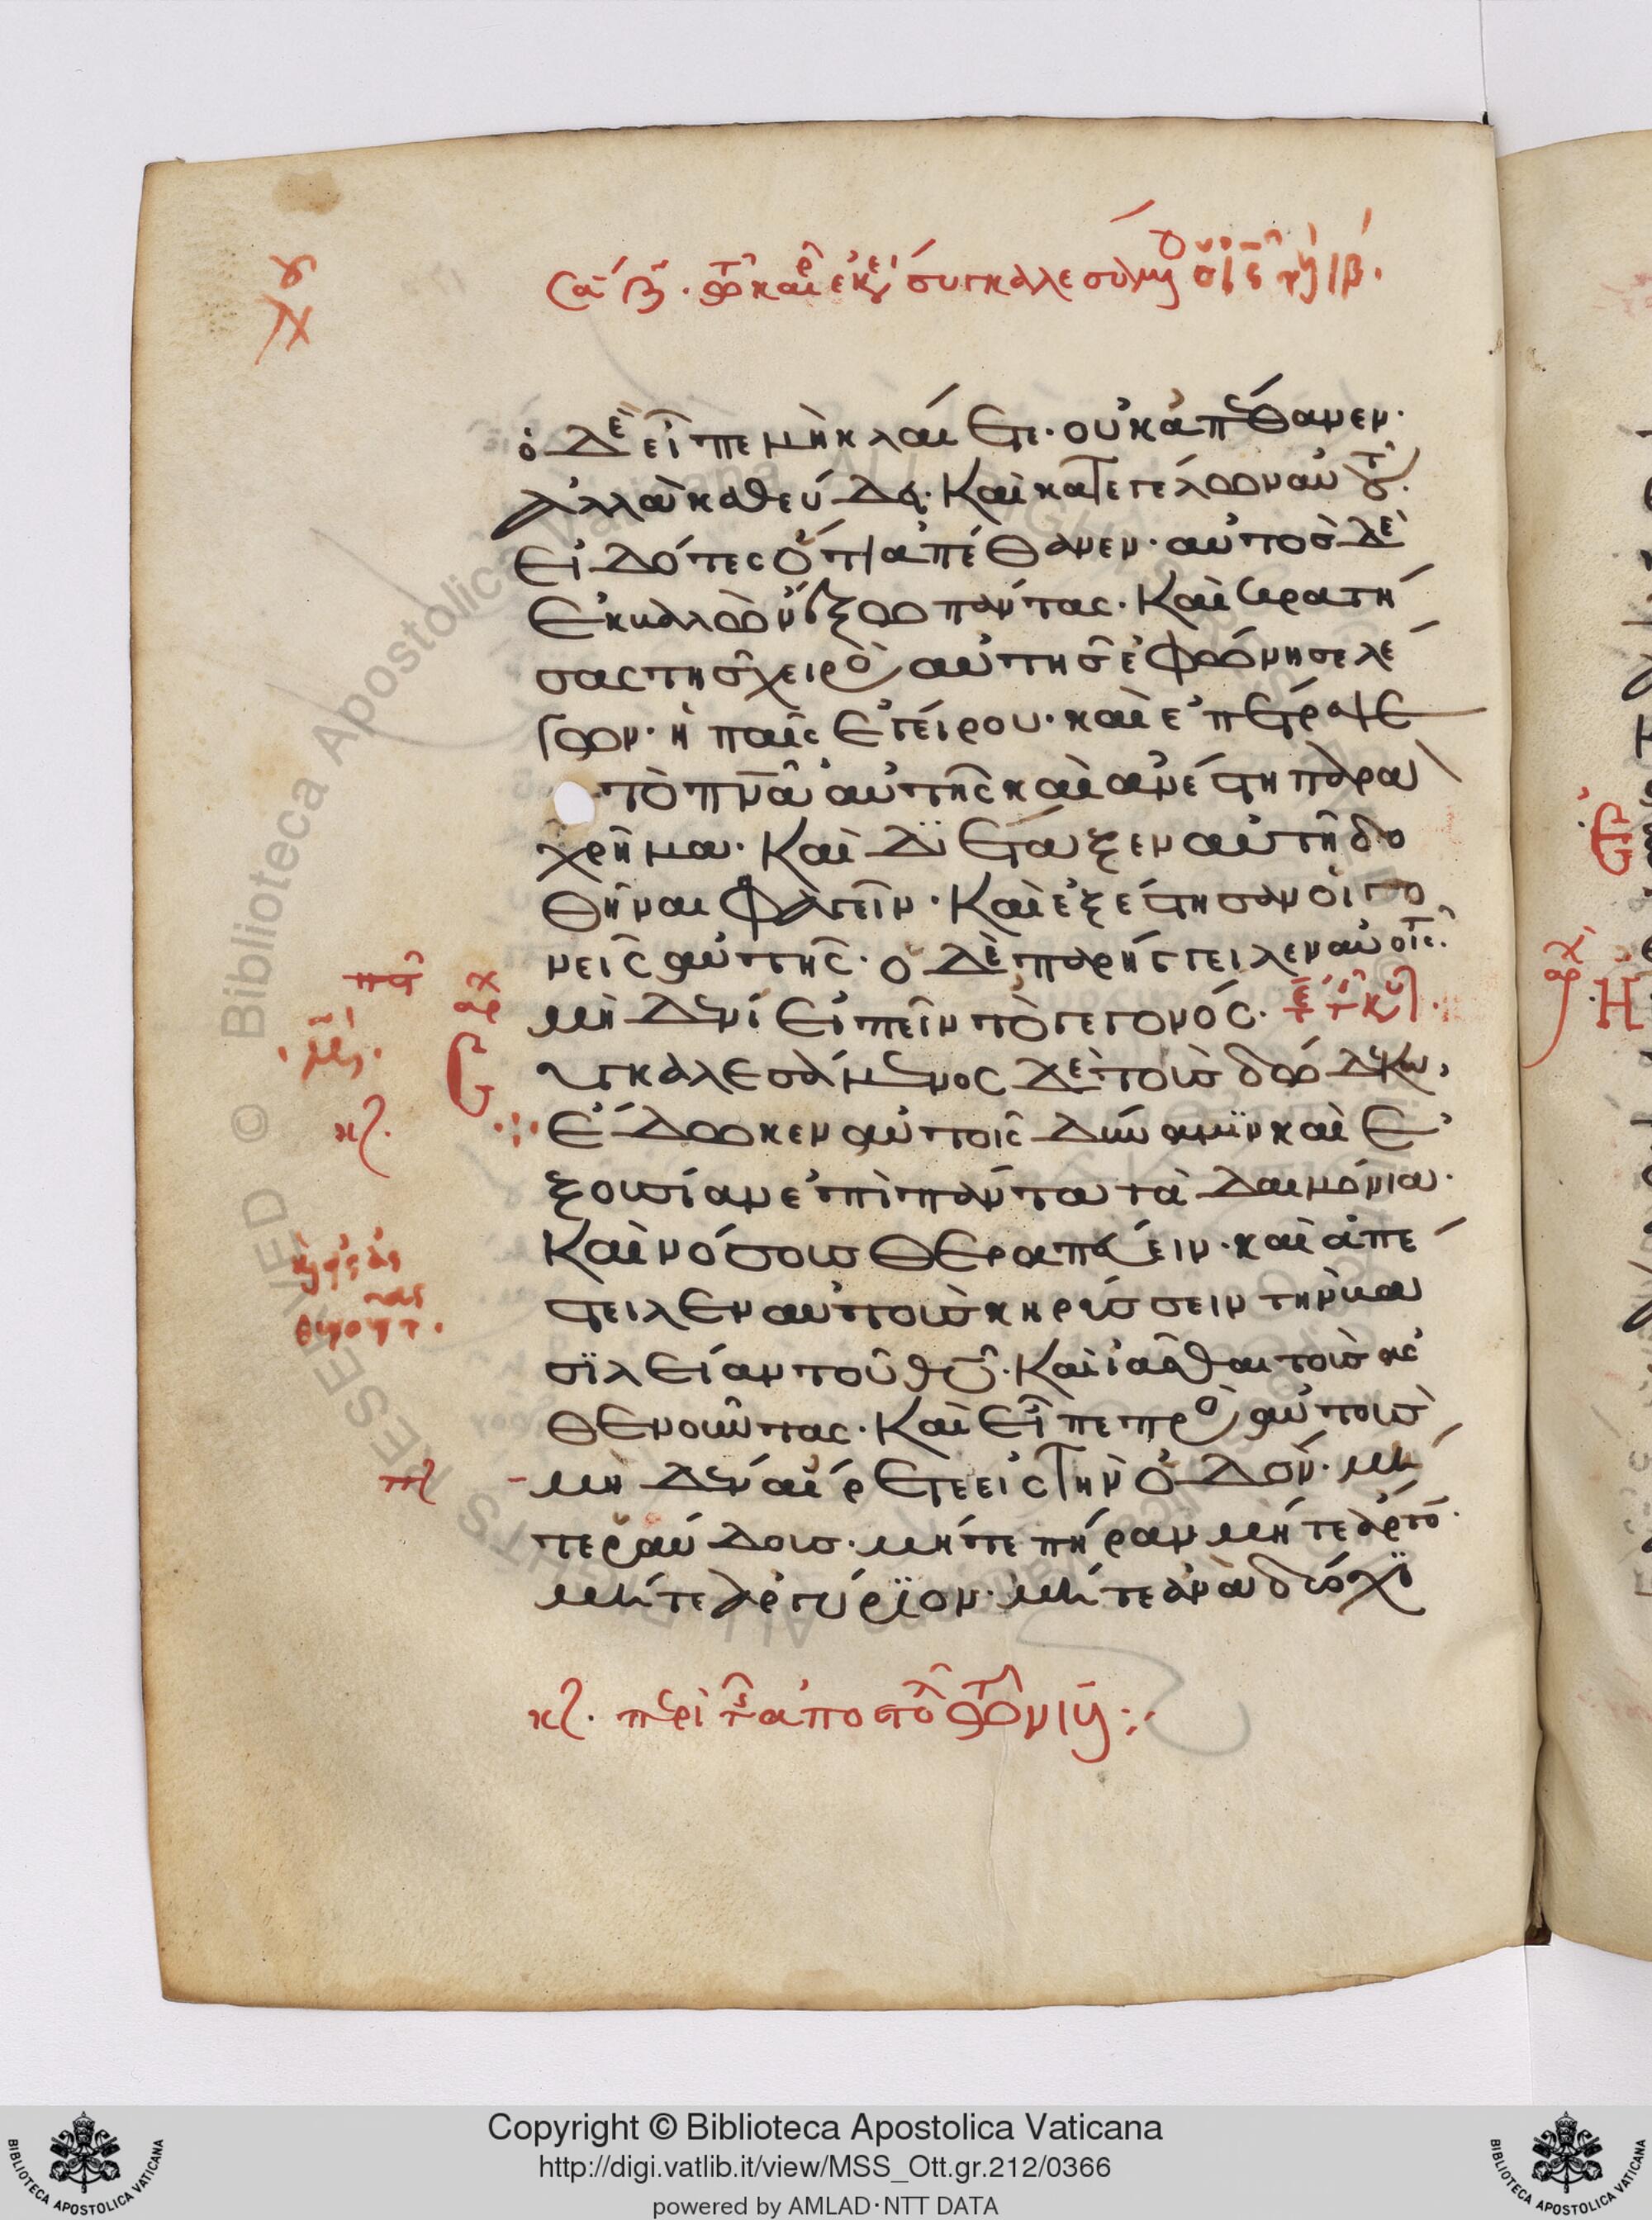 ὁ δὲ εἶπε μὴ κλαίετε· οὐκ ἀπέθανεν·
ἀλλὰ καθεύδει· Καὶ κατεγέλων αὐτοῦ·
εἰδότες ὅτι ἀπέθανεν· αὐτὸς δὲ
ἐκβαλὼν ἔξω πάντας· Καὶ κρατή
σας τῆς χειρὸς αὐτῆς ἐφώνησε λέ
γων· ἡ παῖς ἐγείρου· καὶ ἐπέστρεψε
τὸ πνα αὐτῆς καὶ ἀνέστη παρα
χρῆμα· Καὶ διέταξεν αὐτῇ δο
θῆναι φαγεῖν· Καὶ ἐξέστησαν οἱ γο
νεῖς αὐτῆς· ὁ δὲ παρήγγειλεν αὐτοῖς
μηδενὶ εἰπεῖν τὸ γεγονός·
Συγκαλεσάμενος δὲ τοὺς δώδεκα,
ἔδωκεν αὐτοῖς δύναμϊν καὶ ἐ
ξουσίαν ἐπὶ πάντα τὰ δαιμόνια·
Καὶ νόσους θεραπεύειν· καὶ ἀπέ
στειλεν αὐτοὺς κηρύσσειν τὴν βα
σϊλείαν τοῦ θυ· Καὶ ἰᾶσθαι τοὺς ἀς
θενοῦντας· Καὶ εἶπε πρὸς αὐτοὺς
μηδὲν αἴρετε εἰς τὴν ὁδόν· μή
τε ῥάβδους· μήτε πήραν μήτε ἄρτον·
μήτε ἀργύρϊον· μήτε ἀνὰ δύο χϊ
Copyright © Biblioteca Apostolica Vaticana
http://digi.vatlib.it/view/MSS_Ott.gr.212/0366
powered by AMLAD·NTT DATA